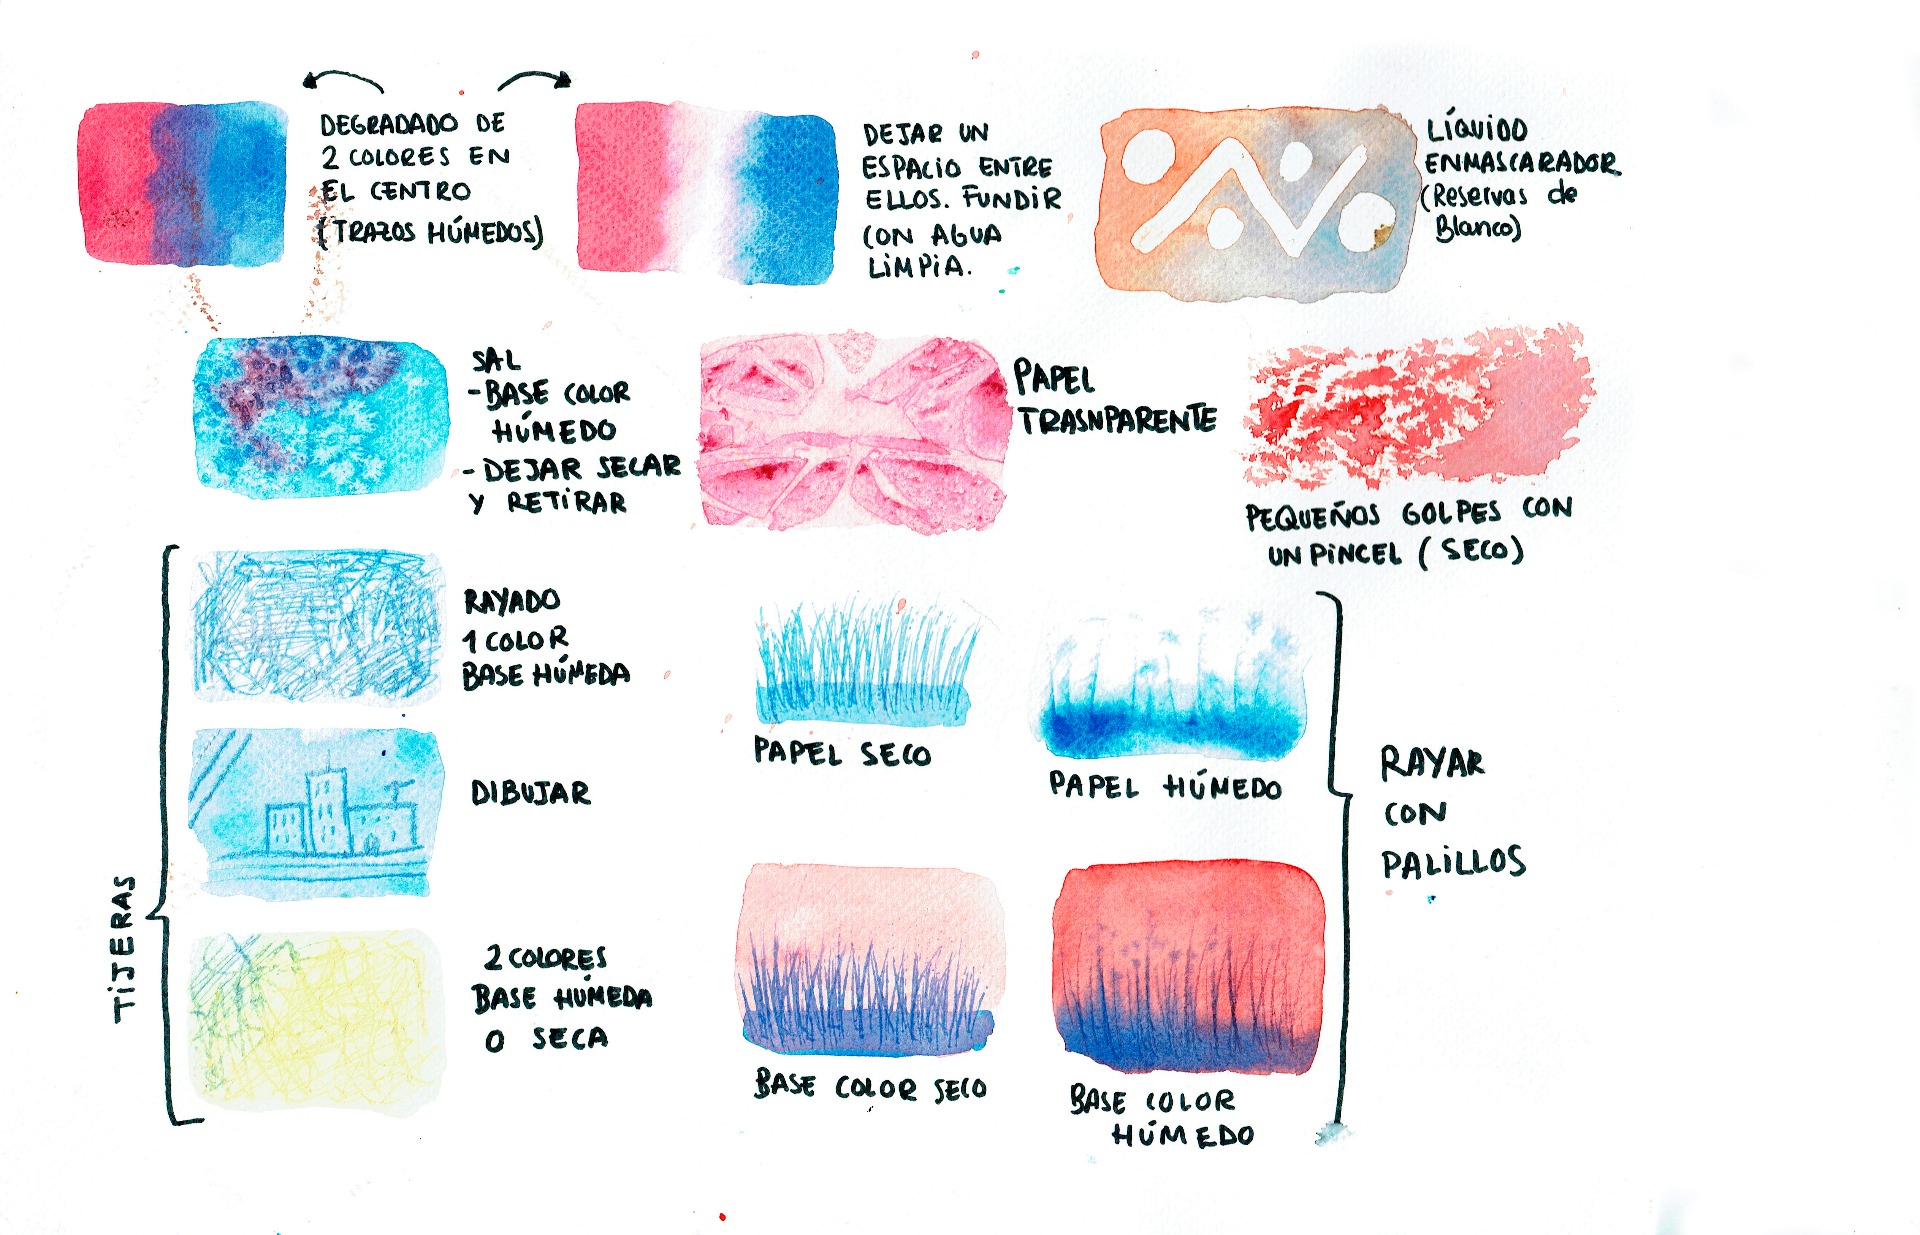 DEGRADADO DE
2 COLORES EN
EL CENTRO
(TRAZOS HÚMEDOS)
DEJAR UN
ESPACIO ENTRE
ELLOS. FUNDIR
CON AGUA
LIMPIA.
LÍQUIDO
ENMASCARADOR
(Reservas de
Blanco)
SAL
-BASE COLOR
HÚMEDO
-DEJAR SECAR
Y RETIRAR
PAPEL
TRASNPARENTE
PEQUEÑOS GOLPES CON
UN PINCEL (SECO)
TIJERAS
RAYADO
1 COLOR
BASE HÚMEDA
DIBUJAR
2 COLORES
BASE HÚMEDA
O SECA
PAPEL SECO
PAPEL HÚMEDO
BASE COLOR SECO
BASE COLOR
HÚMEDO
RAYAR
CON
PALILLOS